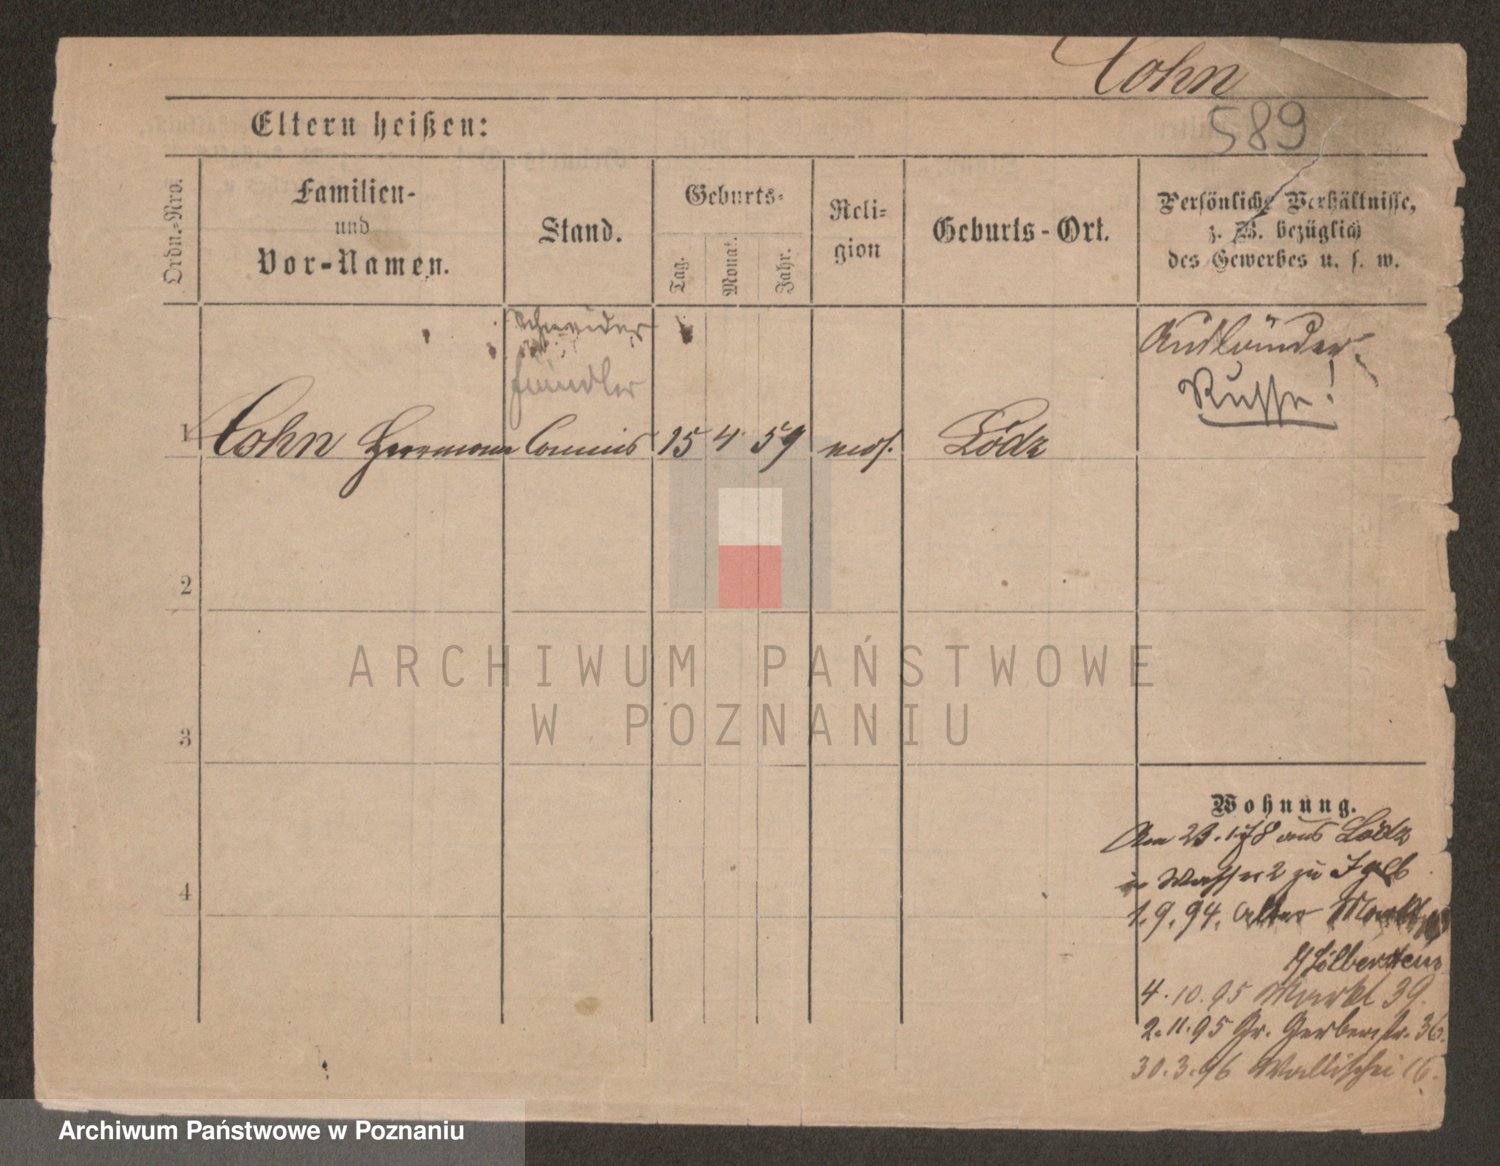 Cohn
589
Eltern heißen:
Ordn.-Nro.
Familien-
und
Vor-Namen.
Stand.
Geburts-
Tag.
Monat.
Jahr.
Reli-
gion
Geburts-Ort.
Persönliche Verhältnisse,
z. B. bezüglich
des Gewerbes u. s. w.
Schneider
Händler
Ausländer
Russe!
1 Cohn Herrmann Commis 15 4 59 mos. Lódz
2
3
4
ARCHIWUM PAŃSTWOWE
W POZNANIU
Wohnung.
Am 23. 1. 78 aus Lódz
Wasser 2 zu
1.9.94. Alter Markt
4.10.95 Markt 39.
2.11.95 Gr. Gerberstr. 36.
30.3.96 Wallischei 16.
Archiwum Państwowe w Poznaniu